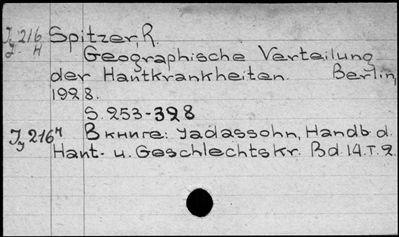 J 216 Spitzer, R.
J- H Geographische Verteilung
der Hantkrankheiten. Berlin,
1928.
S. 253-328
Jy 216H В книге: Jadassohn, Handb d.
Hant- u. Geschlechtskr. Bd. 14. T. 2.